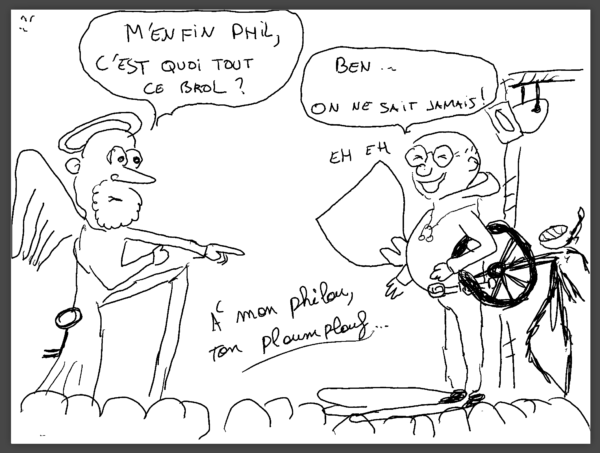 M'ENFIN PHIL,
C'EST QUOI TOUT
CE BROL ?
BEN...
ON NE SAIT JAMAIS !
EH EH
À mon philou,
ton ploumplouf...